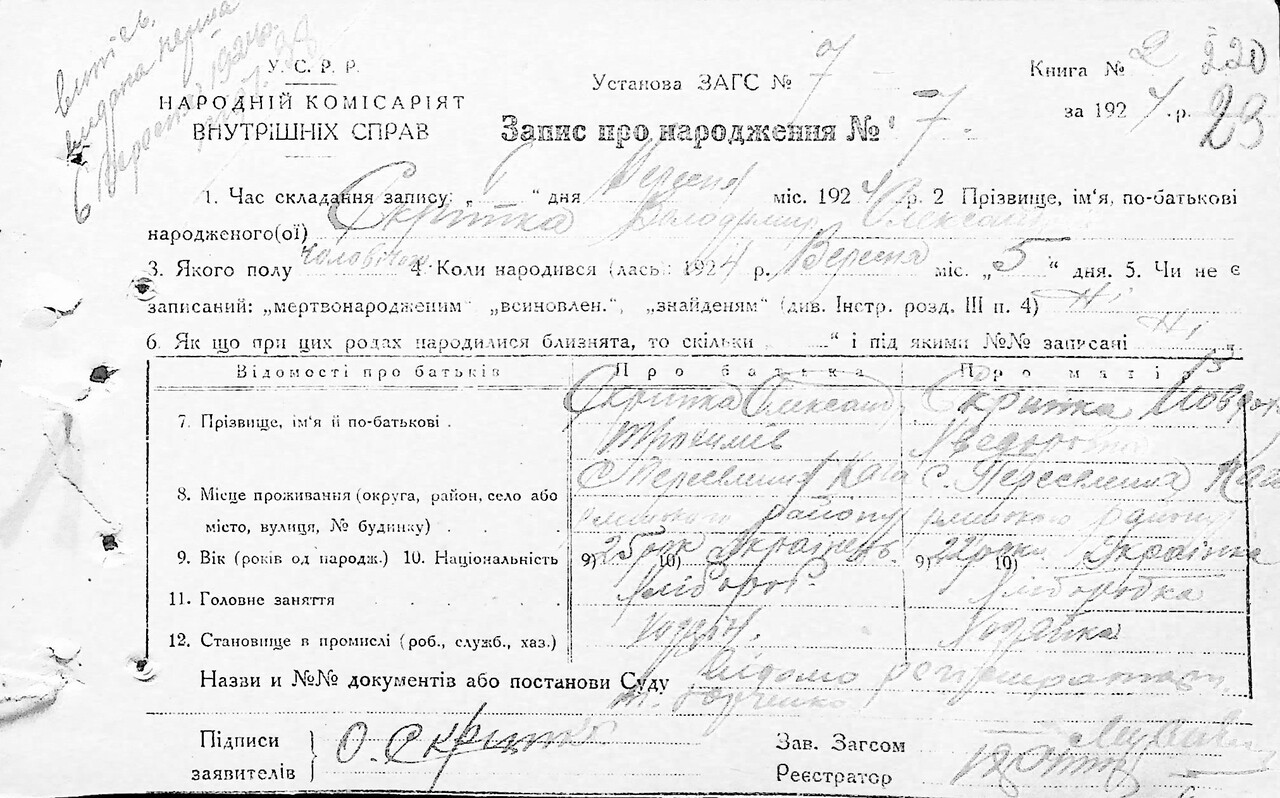 У. С. Р. Р.
НАРОДНІЙ КОМІСАРІЯТ
ВНУТРІШНІХ СПРАВ
Установа ЗАГС № 7
Книга № 2 220
за 1924 р. 23
Запис про народження № 7.
1. Час складання запису: „ 6 “ дня Вересня міс. 1924 р. 2 Прізвище, ім‘я, по-батькові
народженого(ої) Скрипка Володимир Олександ.
3. Якого полу чоловічого 4. Коли народився (лась) 1924 р. Вересня міс. „ 5 “ дня. 5. Чи не є
записаний: „мертвонародженим“ „всиновлен.“, „знайденям“ (див. Інстр. розд. III п. 4) Ні
6. Як що при цих родах народилися близнята, то скільки „ “ і під якими №№ записані Ні
Відомості про батьків Про батька Про матір
7. Прізвище, ім‘я й по-батькові . Скрипка Олександ Скрипка
Трохимів Хведоровна
8. Місце проживання (округа, район, село або с. Переселення с. Переселення
місто, вулиця, № будинку) . . району району
9. Вік (років од народж.) 10. Національність 9) 25 рок 10) Українець. 9) 22 роки 10) Українка
11. Головне заняття . . . . Хлібороб Хліборобка
12. Становище в промислі (роб., служб., хаз.) Хазяїн. Хазяйка
Назви и №№ документів або постанови Суду Відомо
Підписи
заявителів } О. Скрипка
Зав. Загсом
Реєстратор